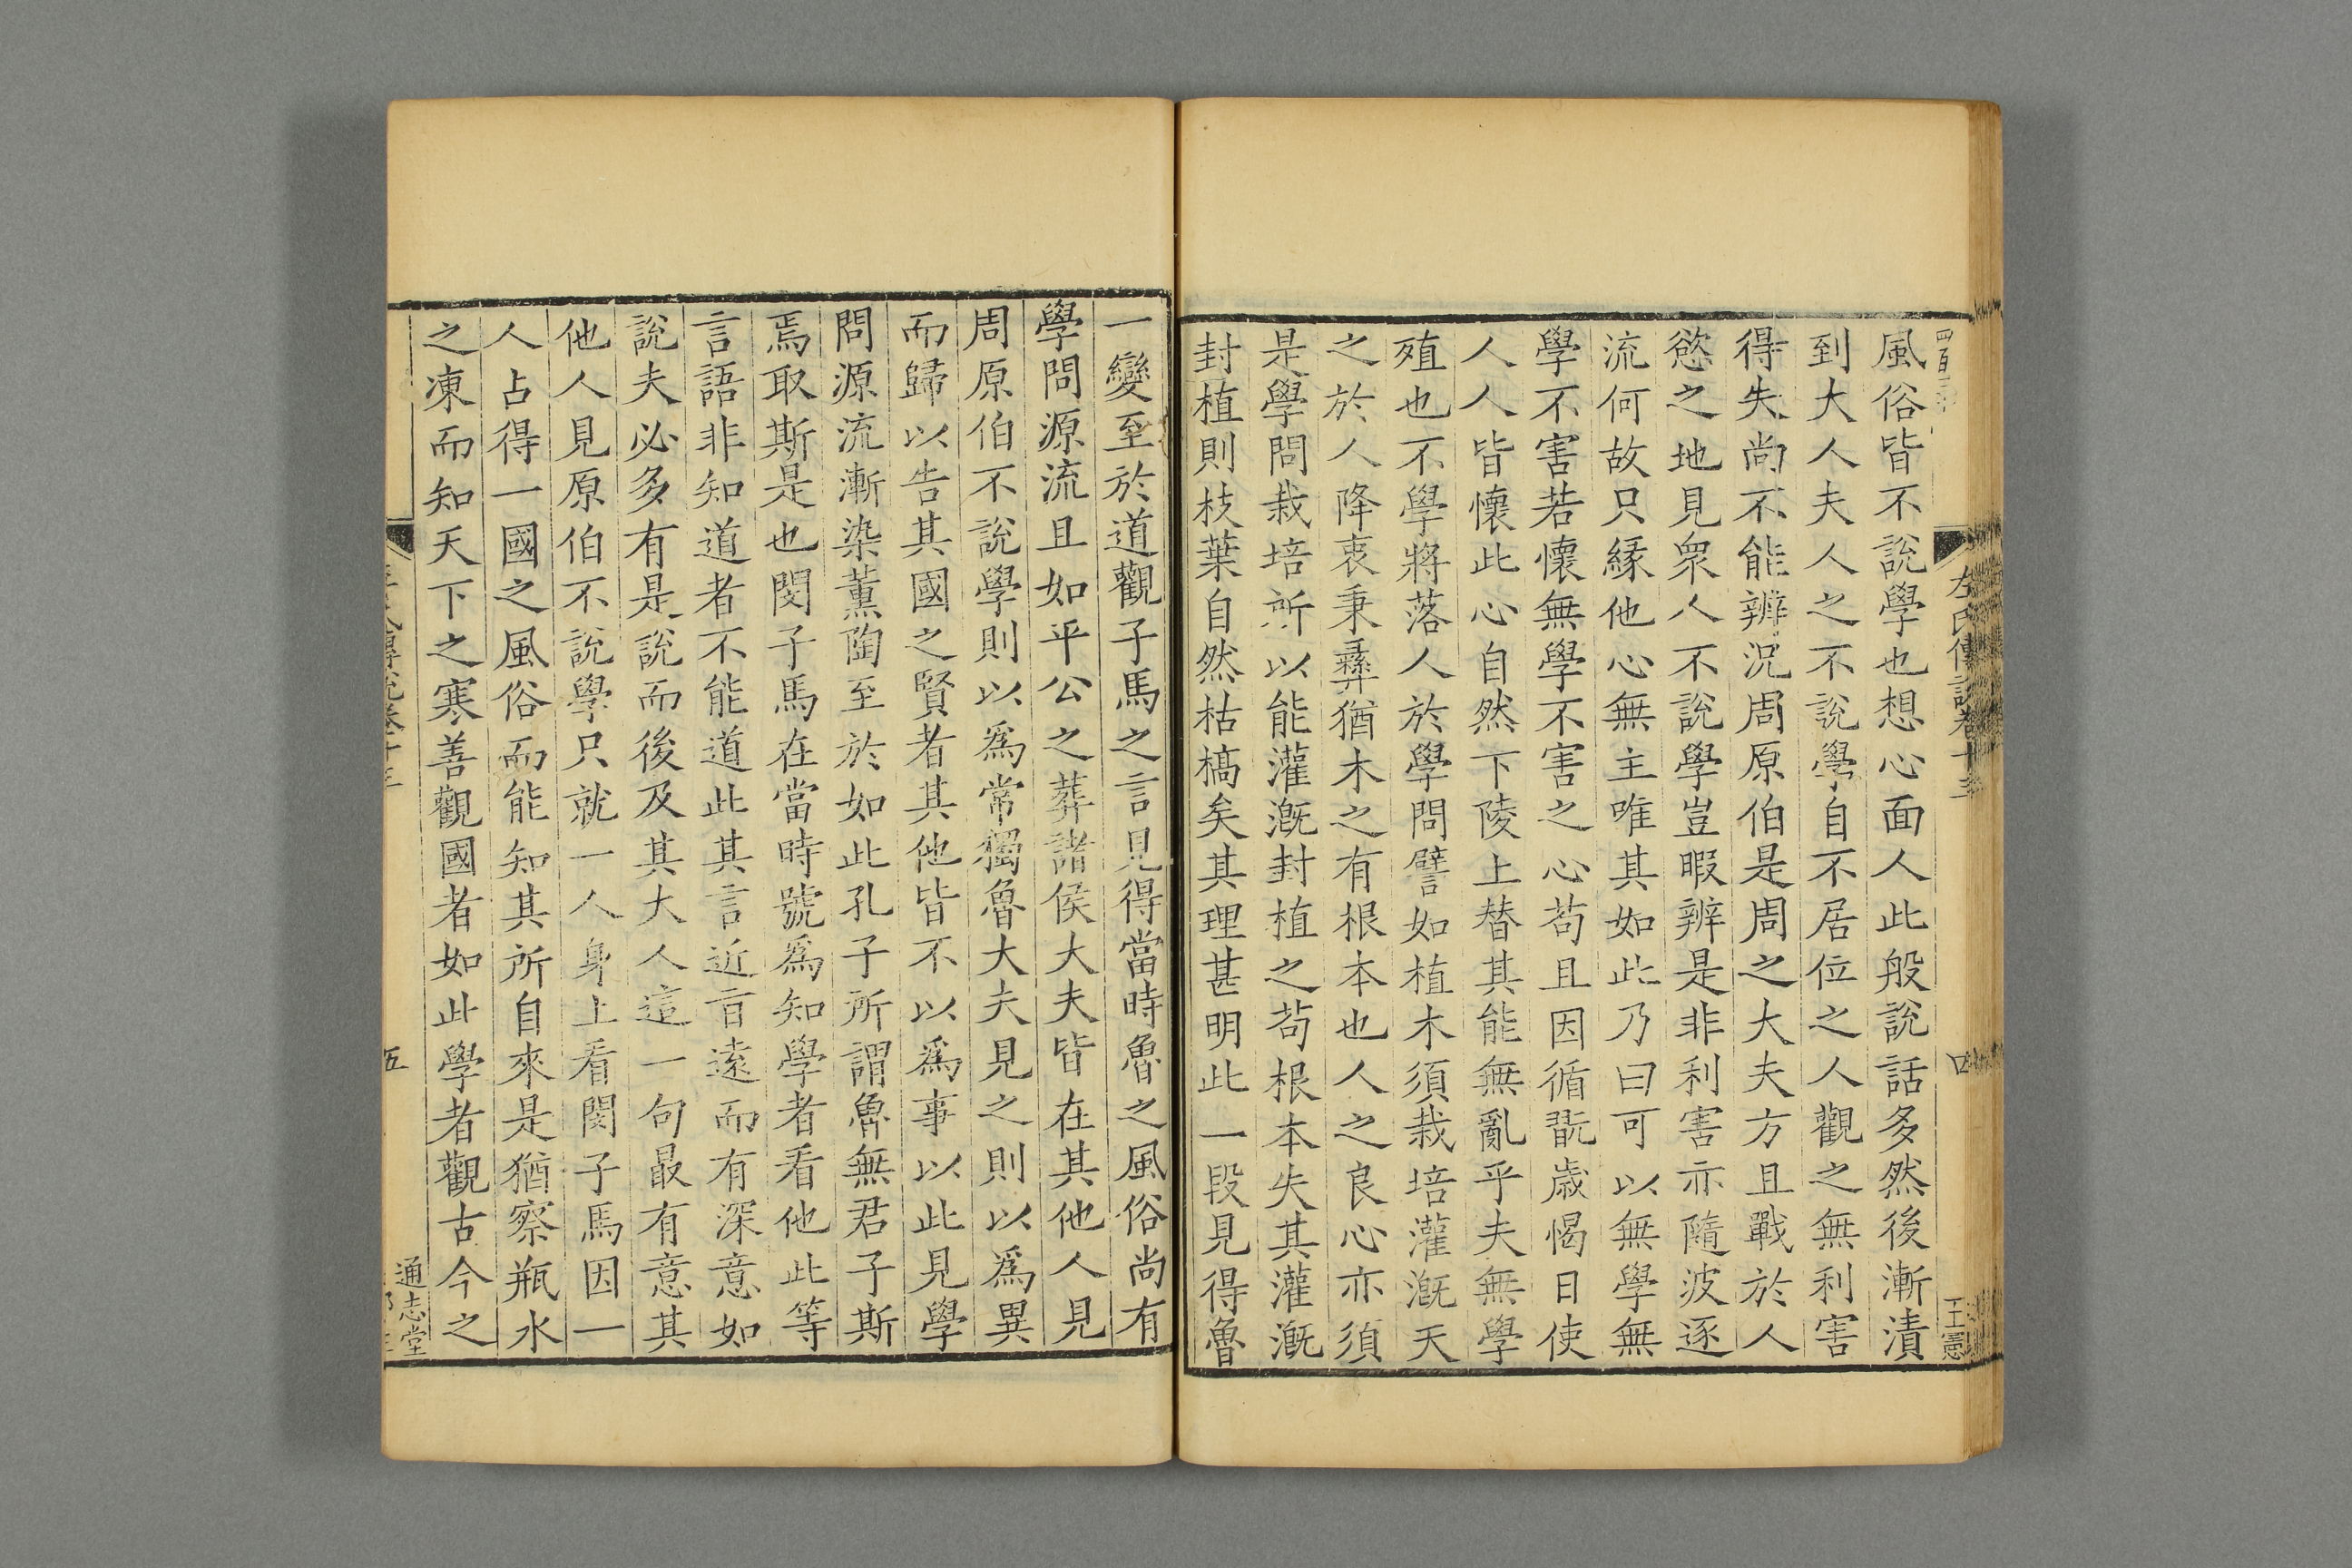 左氏傳說卷十三
四
王憲
風俗皆不說學也想心面人此般說話多然後漸漬
到大人夫人之不說學自不居位之人觀之無利害
得失尚不能辨況周原伯是周之大夫方且戰於人
慾之地見衆人不說學豈暇辨是非利害亦隨波逐
流何故只緣他心無主唯其如此乃曰可以無學無
學不害若懷無學不害之心苟且因循翫歲愒日使
人人皆懷此心自然下陵上替其能無亂乎夫無學
殖也不學將落人於學問譬如植木須栽培灌漑天
之於人降衷秉彞猶木之有根本也人之良心亦須
是學問栽培所以能灌漑封植之苟根本失其灌漑
封植則枝葉自然枯槁矣其理甚明此一段見得魯
一變至於道觀子馬之言見得當時魯之風俗尚有
學問源流且如平公之葬諸侯大夫皆在其他人見
周原伯不說學則以爲常獨魯大夫見之則以爲異
而歸以告其國之賢者其他皆不以爲事以此見學
問源流漸染薰陶至於如此孔子所謂魯無君子斯
焉取斯是也閔子馬在當時號爲知學者看他此等
言語非知道者不能道此其言近旨遠而有深意如
說夫必多有是說而後及其大人這一句最有意其
他人見原伯不說學只就一人身上看閔子馬因一
人占得一國之風俗而能知其所自來是猶察瓶水
之凍而知天下之寒善觀國者如此學者觀古今之
五
通志堂